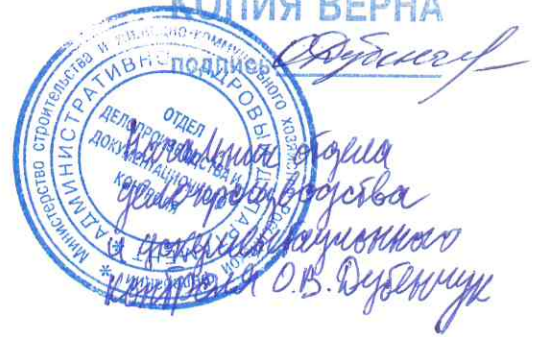 КОПИЯ ВЕРНА
ПОДПИСЬ
Министерство строительства и жилищно-коммунального хозяйства Российской Федерации
АДМИНИСТРАТИВНО-КАДРОВЫЙ ДЕПАРТАМЕНТ
ОТДЕЛ
ДЕЛОПРОИЗВОДСТВА И
ДОКУМЕНТАЦИОННОГО
КОНТРОЛЯ
Начальник отдела
делопроизводства
и документационного
контроля О.В. Дубенчук